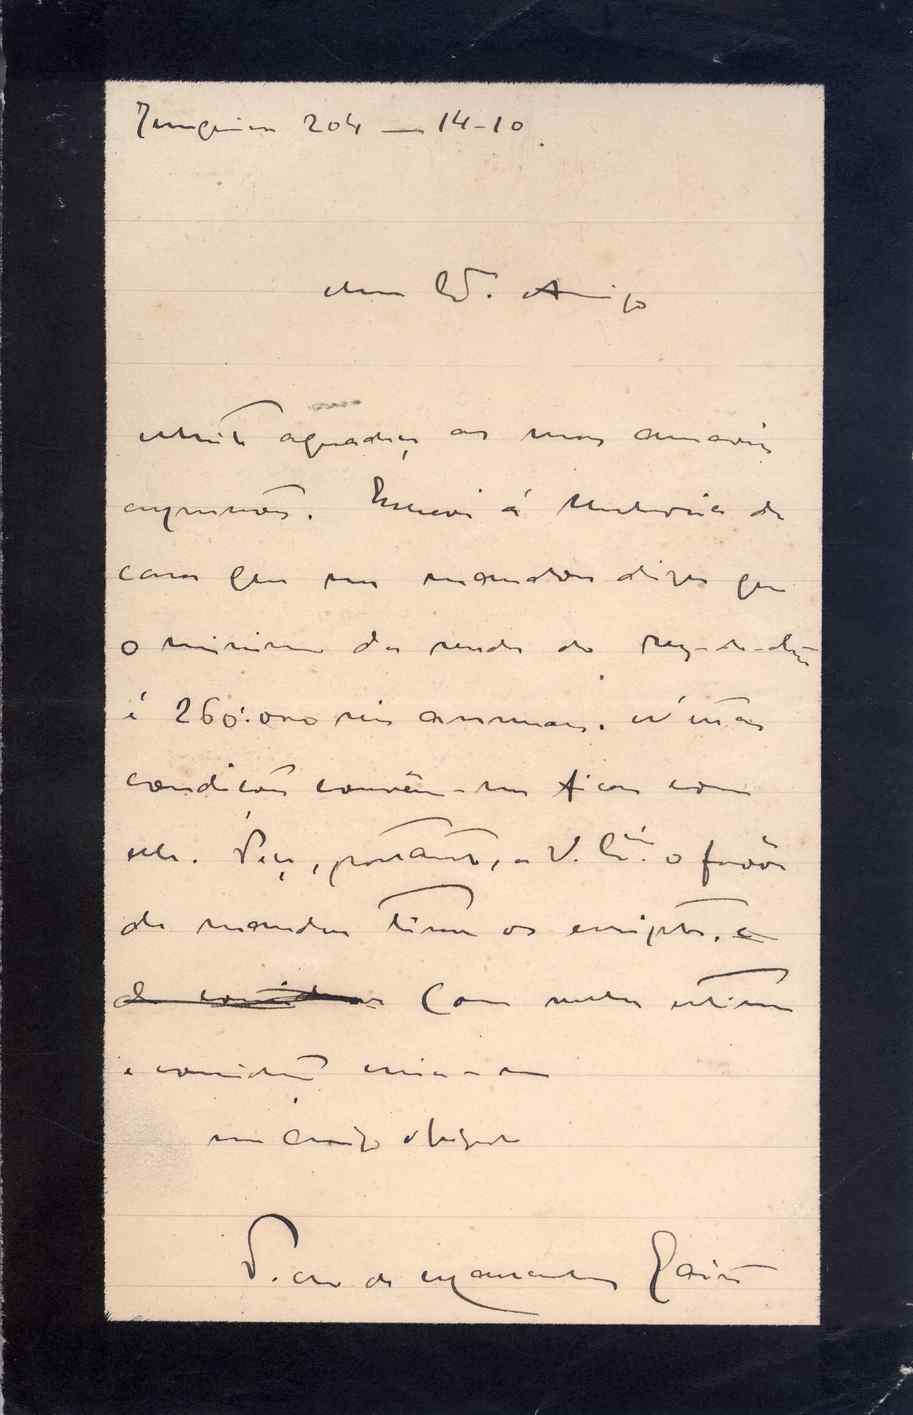 Junqueira 204 — 14-10
Meu Ex.mo Amigo
Muito agradeço as mas amaveis
expressões. Escrevi á Senhoria da
casa que me mandou dizer que
o minimo da renda do rez-do-chão
é 260:000 reis annuaes. N'estas
condições convêm-me ficar com
elle. Peço, portanto, a V. Ex.cia o favôr
de mandar tirar os escriptos. e
Com muita estima
e consideração
amigo obrigado
de Carvalho